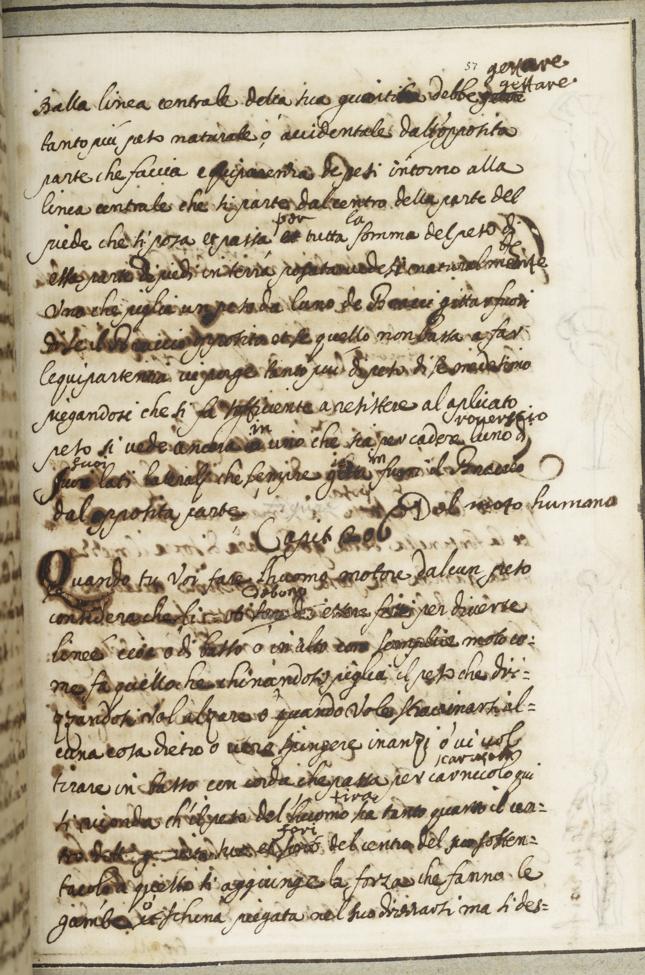 57 gettare
Dalla linea centrale della sua debbe gettare
tanto più peso naturale, ó accidentale dall'opposita
parte che faccia equiparenza de pesi intorno alla
linea centrale che si parte dal centro della parte del
piede che si posa et passa per tutta la somma del peso di
essa parte piedi in terra posata vedesi naturalmente
Uno che piglia un peso da l'uno de Bracci gittar fuori
di se il Braccio opposito et se quello non bassa a far
l'equiparentia vi porge tanto piu di peso di se medesimo
piegandosi che si fa sufficiente a resistere al aplicato
peso si vede ancora in uno che sia per cadere roverscio l'uno d
suoi lati laterali che sempre in fuori il Braccio
dal opposita parte
Del moto humano
Capit
Quando tu voi fare l'huomo motore d'alcun peso
considera che li debono essere per diverse
linee cioè o di basso o in alto con semplice moto co=
me fa quello che chinandosi piglia il peso che dri=
zzandosi vol alzare o quando vole strascinarsi al=
cuna cosa dietro o vero spingere inanzi ó vi vol
tirare in basso con corda che passa per carrucola qui
si ricorda ch'il peso del l'huomo tira tanto quanto il cen=
tro del fori del centro del suo sosten=
tacolo a questo si aggiunge la forza che fanno le
gambe et schina piegata nel suo drizzarsi ma si des=